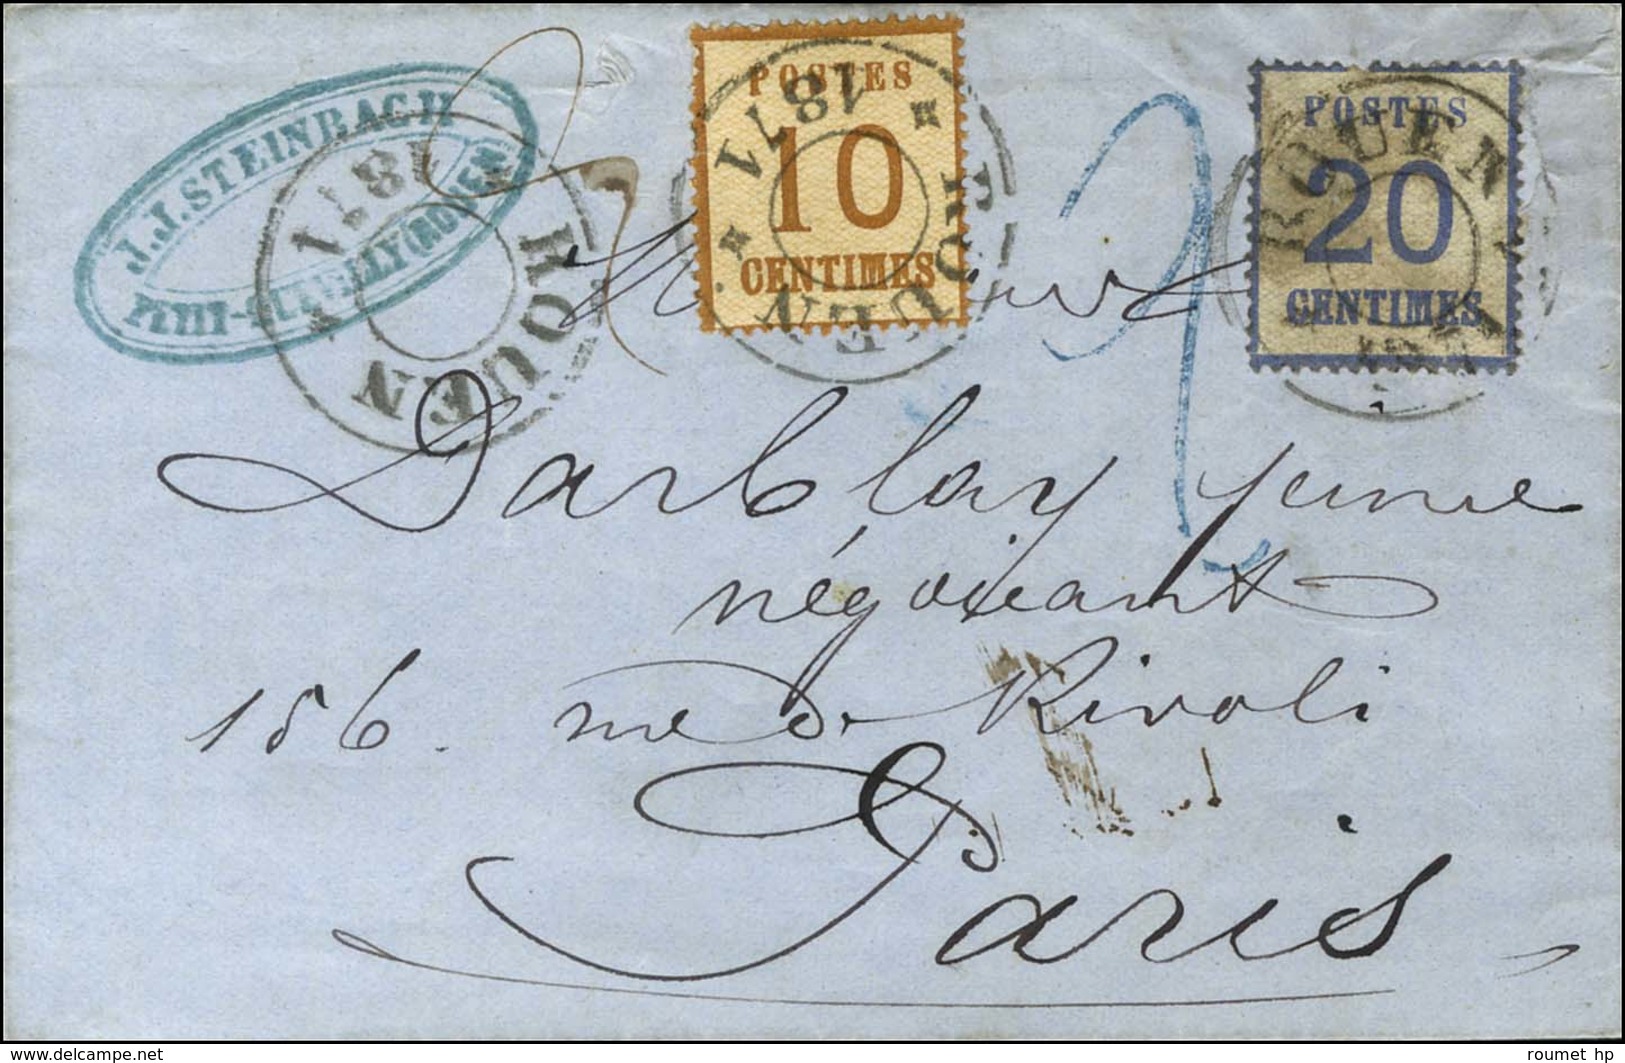 J.J. STEINBACH
PETIT-QUEVILLY (ROUEN)
ROUEN
1871
POSTES
10
CENTIMES
ROUEN
1871
POSTES
20
CENTIMES
ROUEN
1871
2
Monsieur
Darblay jeune
négociant
156. rue de Rivoli
Paris
www.delcampe.net
roumet hp